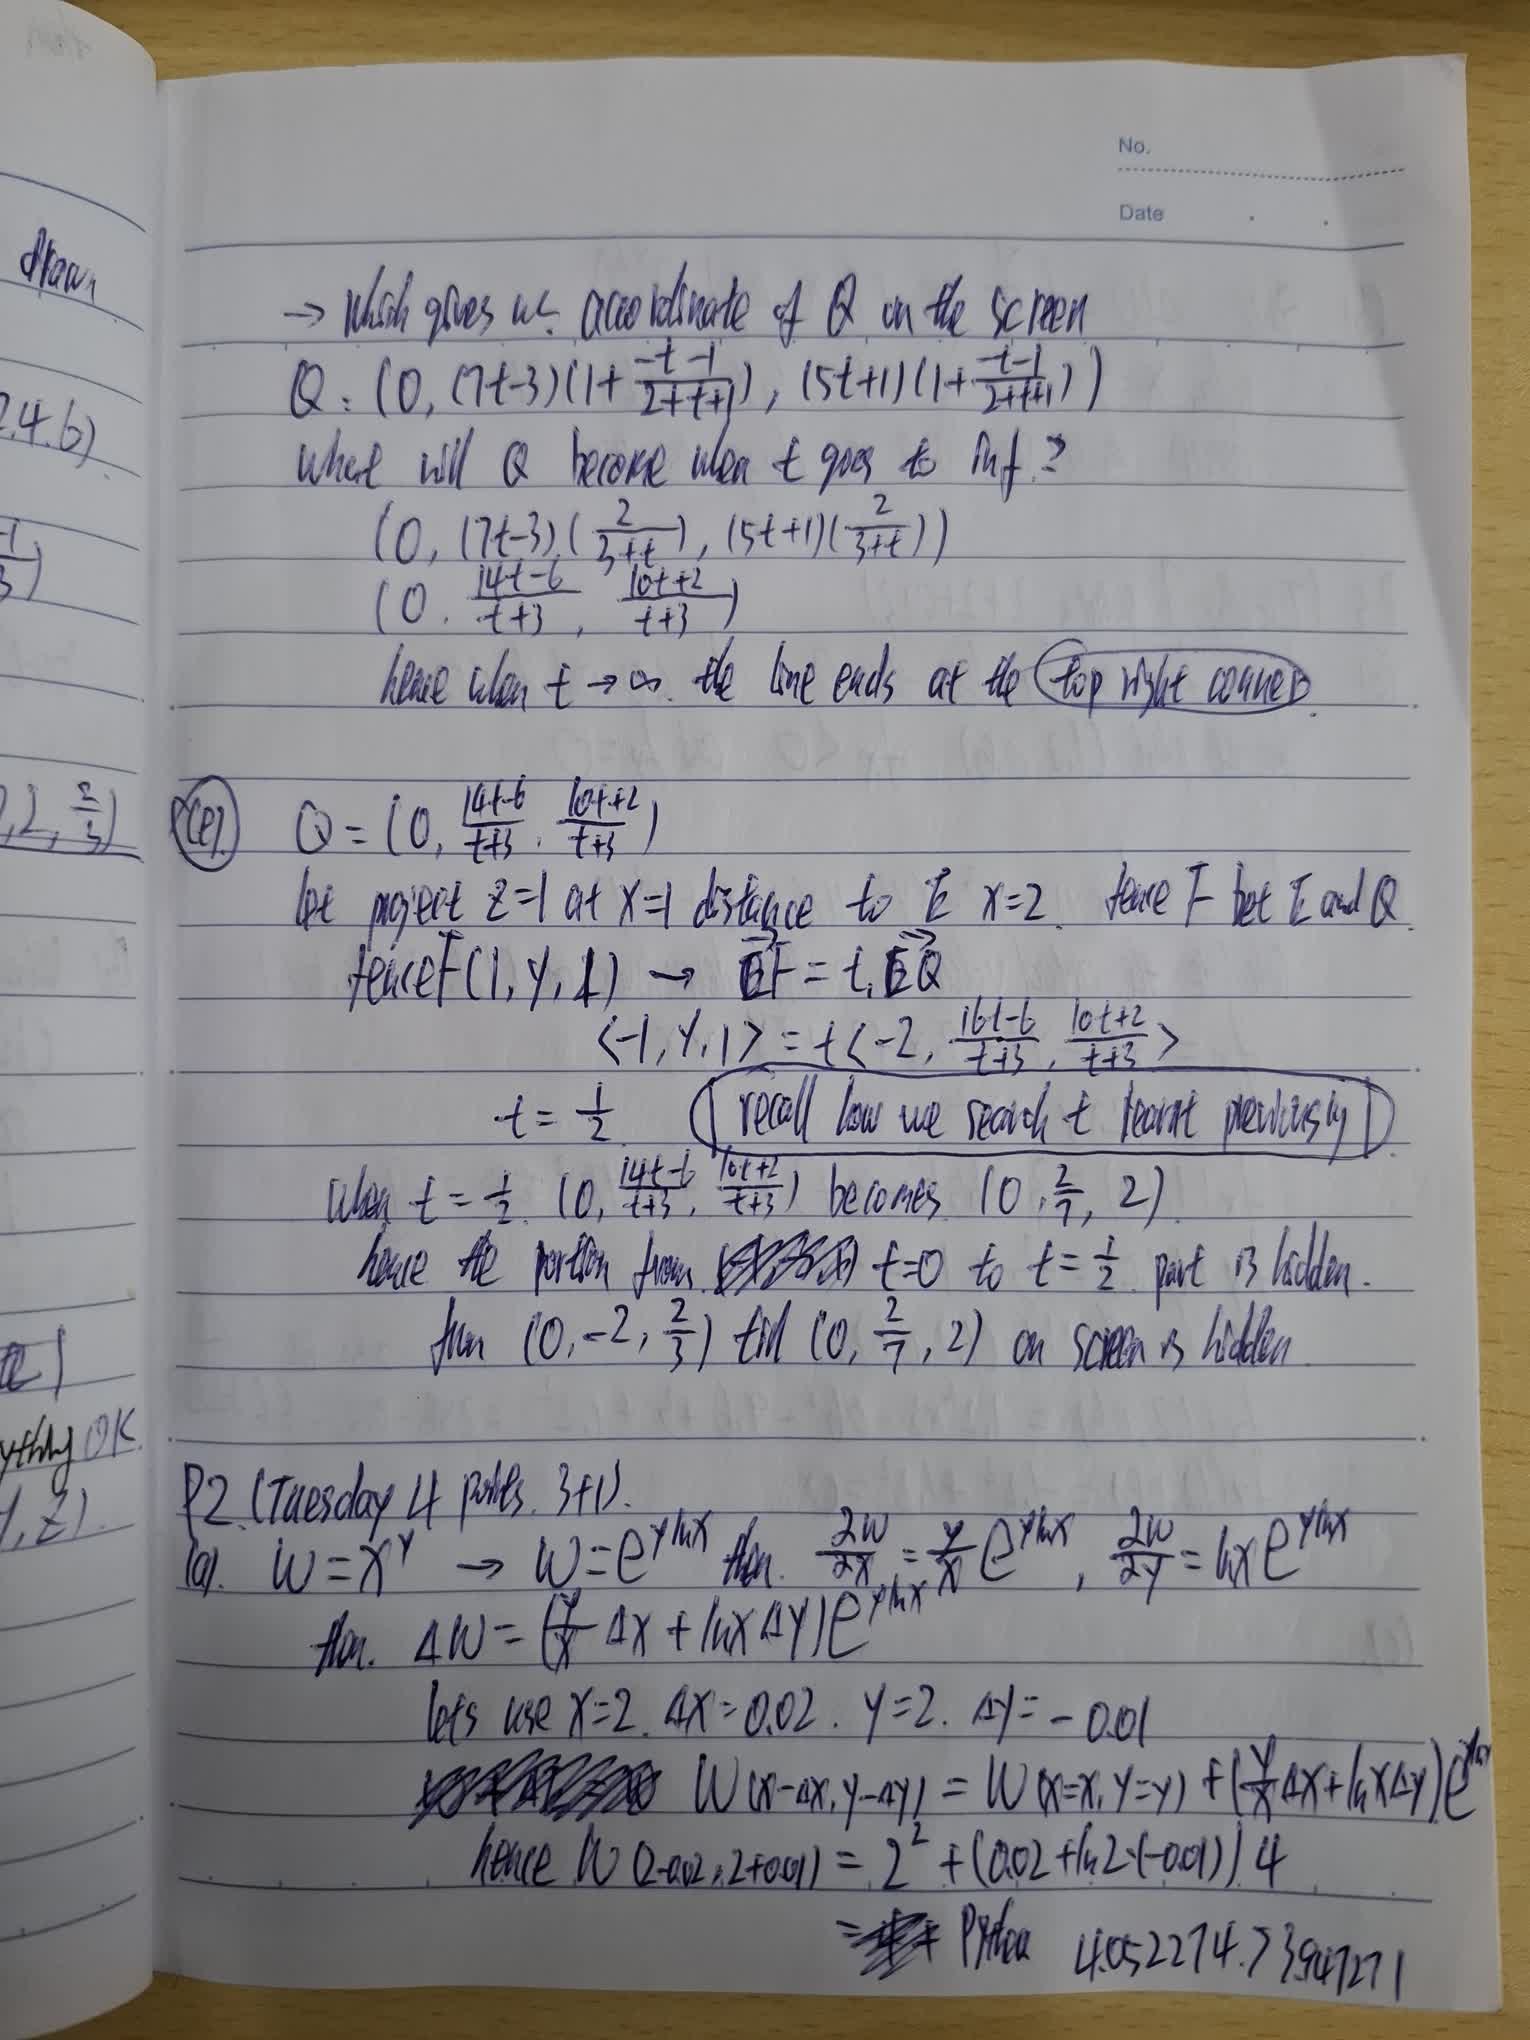 No.
Date
drawn
2.4.6)
→ which gives us. accordinate of Q on the screen
Q: (0, (7t-3)(1+\frac{-t-1}{2+t+1}), (5t+1)(1+\frac{-t-1}{2+t+1}))
where will Q become when t goes to inf?
(0, (7t-3)(\frac{2}{3+t}), (5t+1)(\frac{2}{3+t}))
(0. \frac{14t-6}{t+3}, \frac{10t+2}{t+3})
hence when t → ∞. the line ends at the top right corner.
(e). Q = (0, \frac{14t-6}{t+3}, \frac{10t+2}{t+3})
let project z=1 at x=1 distance to E x=2. hence F bet E and Q.
hence F(1, y, 1) → \vec{EF} = t.\vec{EQ}
<-1, y, 1> = t<-2, \frac{16t-6}{t+3}, \frac{10t+2}{t+3}>
t = \frac{1}{2} recall how we search t learnt previously
when t = \frac{1}{2}. (0, \frac{14t-6}{t+3}, \frac{10t+2}{t+3}) becomes (0, \frac{2}{7}, 2).
hence the portion from t=0 to t=\frac{1}{2} part is hidden.
from (0, -2, \frac{2}{3}) till (0, \frac{2}{7}, 2) on screen is hidden
, 2, \frac{2}{3})
ything OK.
, z).
P2. (Tuesday 4 points. 3+1).
(a). W = x^y → W = e^{y ln x} then. \frac{∂W}{∂x} = \frac{y}{x} e^{y ln x}, \frac{∂W}{∂y} = ln x e^{y ln x}
then. ΔW = (\frac{y}{x} Δx + ln x Δy) e^{y ln x}
lets use x=2. Δx=0.02. y=2. Δy=-0.01
W(x-Δx, y-Δy) = W(x=x, y=y) + (\frac{y}{x} Δx + ln x Δy) e^{y ln x}
hence W(2-0.02, 2+0.01) = 2^2 + (0.02 + ln 2·(-0.01)) 4
= Python 4.052274.73947271